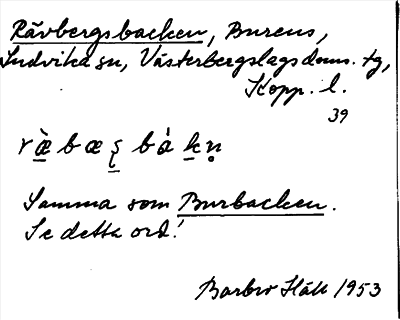 Rävbergsbacken, Burens,
Ludvika sn, Västerbergslags doms. tg,
Kopp. l.
39
ræ̀bæʂbákn̥
Samma som Burbacken.
Se detta ord!
Barbro Häll 1953